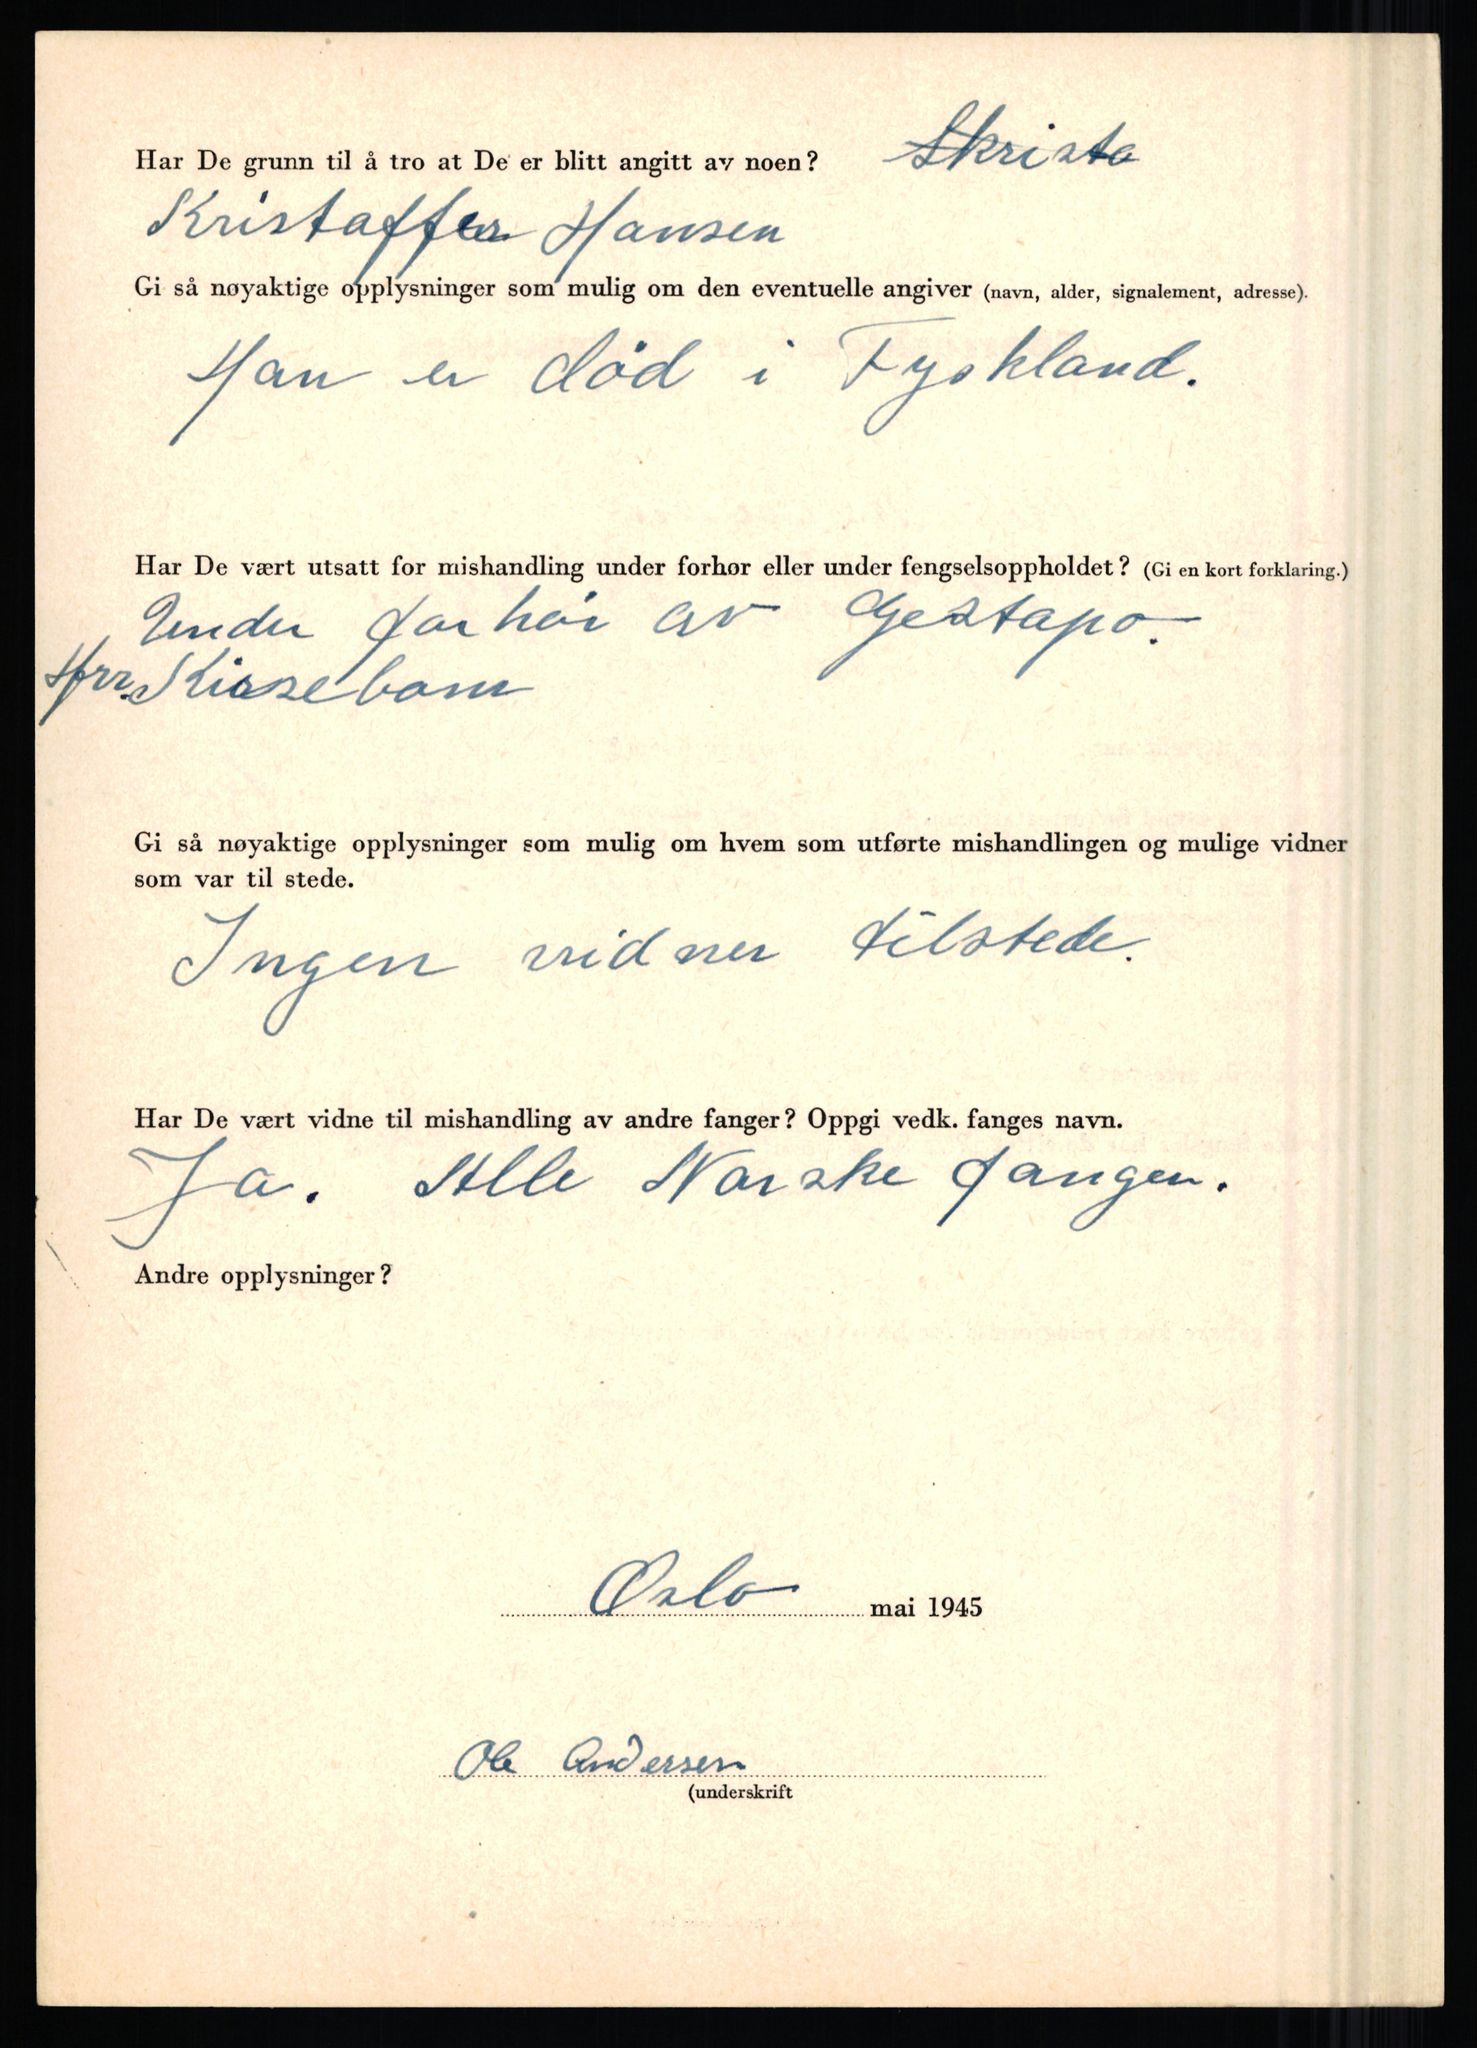 Har De grunn til å tro at De er blitt angitt av noen? Skristo
Kristoffer Hansen
Gi så nøyaktige opplysninger som mulig om den eventuelle angiver (navn, alder, signalement, adresse).
Han er död i Tyskland.
Har De vært utsatt for mishandling under forhør eller under fengselsoppholdet? (Gi en kort forklaring.)
Under forhör av Gestapo.
Hrr. Kissebom
Gi så nøyaktige opplysninger som mulig om hvem som utførte mishandlingen og mulige vidner
som var til stede.
Ingen vidner tilstede.
Har De vært vidne til mishandling av andre fanger? Oppgi vedk. fanges navn.
Ja. Alle Norske fangen.
Andre opplysninger?
Oslo mai 1945
Ole Andersen
(underskrift